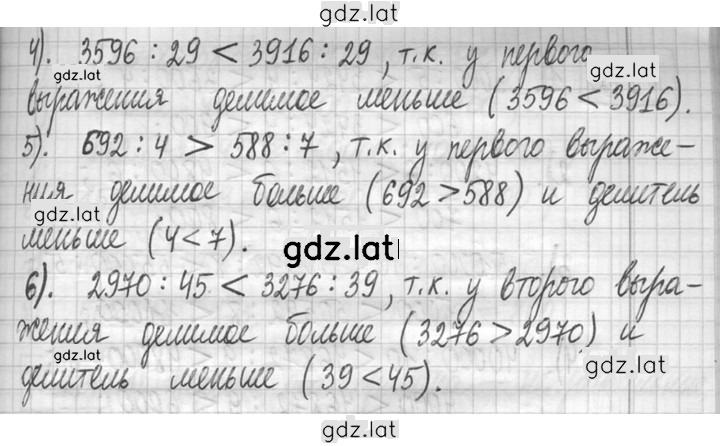 gdz.lat
4). 3596 : 29 < 3916 : 29, т.к. у первого
gdz.lat
gdz.lat
выражения делимое меньше (3596 < 3916).
5). 692 : 4 > 588 : 7, т.к. у первого выраже-
ния делимое больше (692 > 588) и делитель
gdz.lat
меньше (4 < 7).
gdz.lat
6). 2970 : 45 < 3276 : 39, т.к. у второго выра-
жения делимое больше (3276 > 2970) и
gdz.lat
gdz.lat
делитель меньше (39 < 45).
gdz.lat